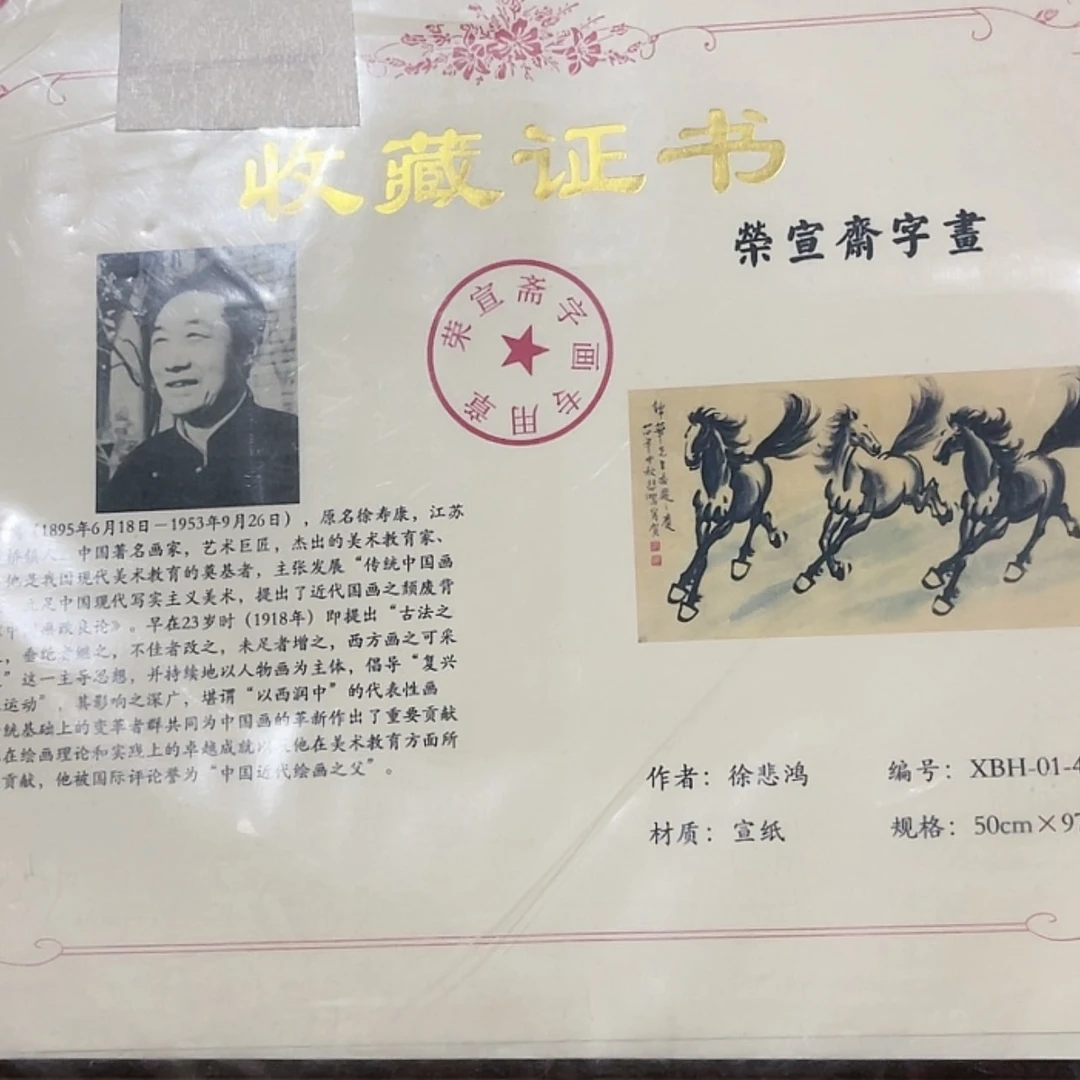 收藏证书
榮宣齋字畫
荣宣斋字画专用章
（1895年6月18日—1953年9月26日），原名徐寿康，江苏
桥镇人。中国著名画家，艺术巨匠，杰出的美术教育家、
他是我国现代美术教育的奠基者，主张发展“传统中国画
立足中国现代写实主义美术，提出了近代国画之颓废背
中国画改良论》。早在23岁时（1918年）即提出“古法之
，垂绝者继之，不佳者改之，未足者增之，西方画之可采
”这一主导思想，并持续地以人物画为主体，倡导“复兴
运动”，其影响之深广，堪谓“以西润中”的代表性画
统基础上的变革者群共同为中国画的革新作出了重要贡献
在绘画理论和实践上的卓越成就以及他在美术教育方面所
贡献，他被国际评论誉为“中国近代绘画之父”。
作者：徐悲鸿
编号：XBH-01-4
材质：宣纸
规格：50cm×97